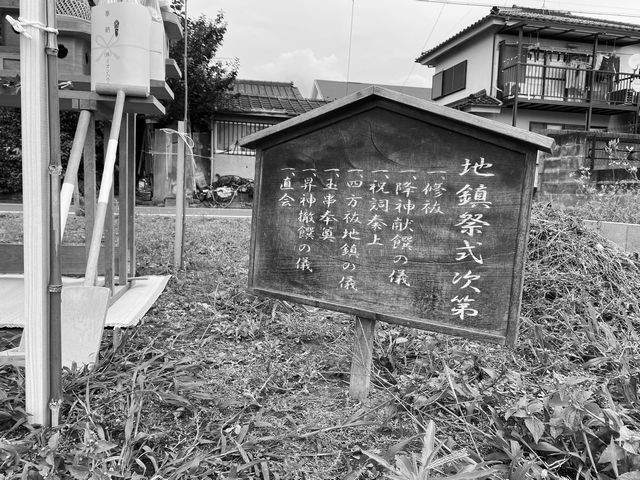 地鎮祭式次第
一、修祓
一、降神献饌の儀
一、祝詞奏上
一、四方祓地鎮の儀
一、玉串奉奠
一、昇神撤饌の儀
一、直会
奉納